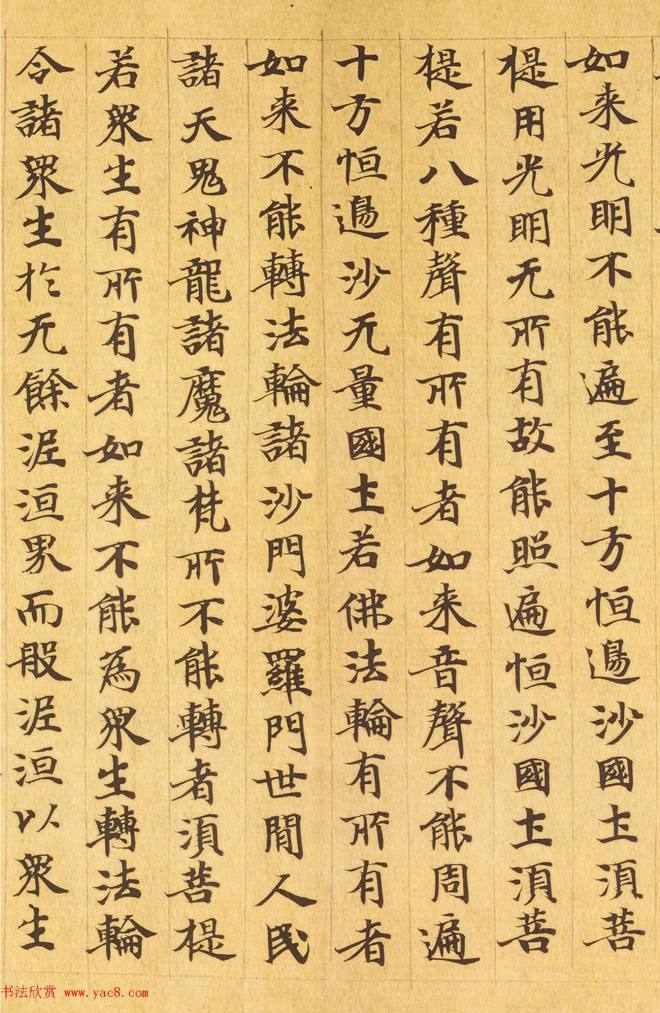 如来光明不能遍至十方恒邊沙國土須菩
提用光明无所有故能照遍恒沙國土須菩
提若八種聲有所有者如来音聲不能周遍
十方恒邊沙无量國土若佛法輪有所有者
如来不能轉法輪諸沙門婆羅門世間人民
諸天鬼神龍諸魔諸梵所不能轉者須菩提
若衆生有所有者如来不能為衆生轉法輪
令諸衆生於无餘泥洹界而般泥洹以衆生
书法欣赏 www.yac8.com